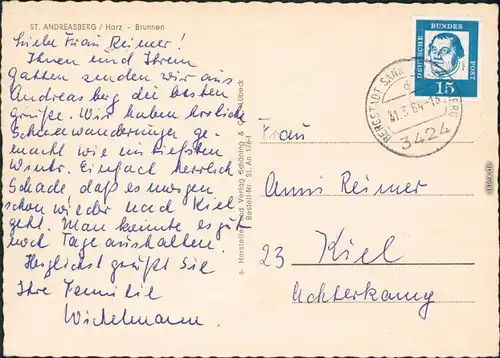 ST. ANDREASBERG / Harz - Brunnen
Liebe Frau Reimer!
Ihnen und Ihrem
Gatten senden wir aus
Andreasberg die besten
Grüße. Wir haben herrliche
Schneewanderungen ge-
macht wie im tiefsten
Winter. Einfach herrlich.
Schade, daß es morgen
schon wieder nach Kiel
geht. Man könnte es gut
noch Tage aushalten.
Herzlichst grüßt Sie
Ihre Familie
Wichelmann.
Hersteller und Verlag Schöning & Co., Lübeck
Bestell-Nr. St. An 176
DEUTSCHE BUNDES POST
15
BERGSTADT SANKT
31.3.64-18
3424
Frau
Anni Reimer
23 Kiel
Achterkamp